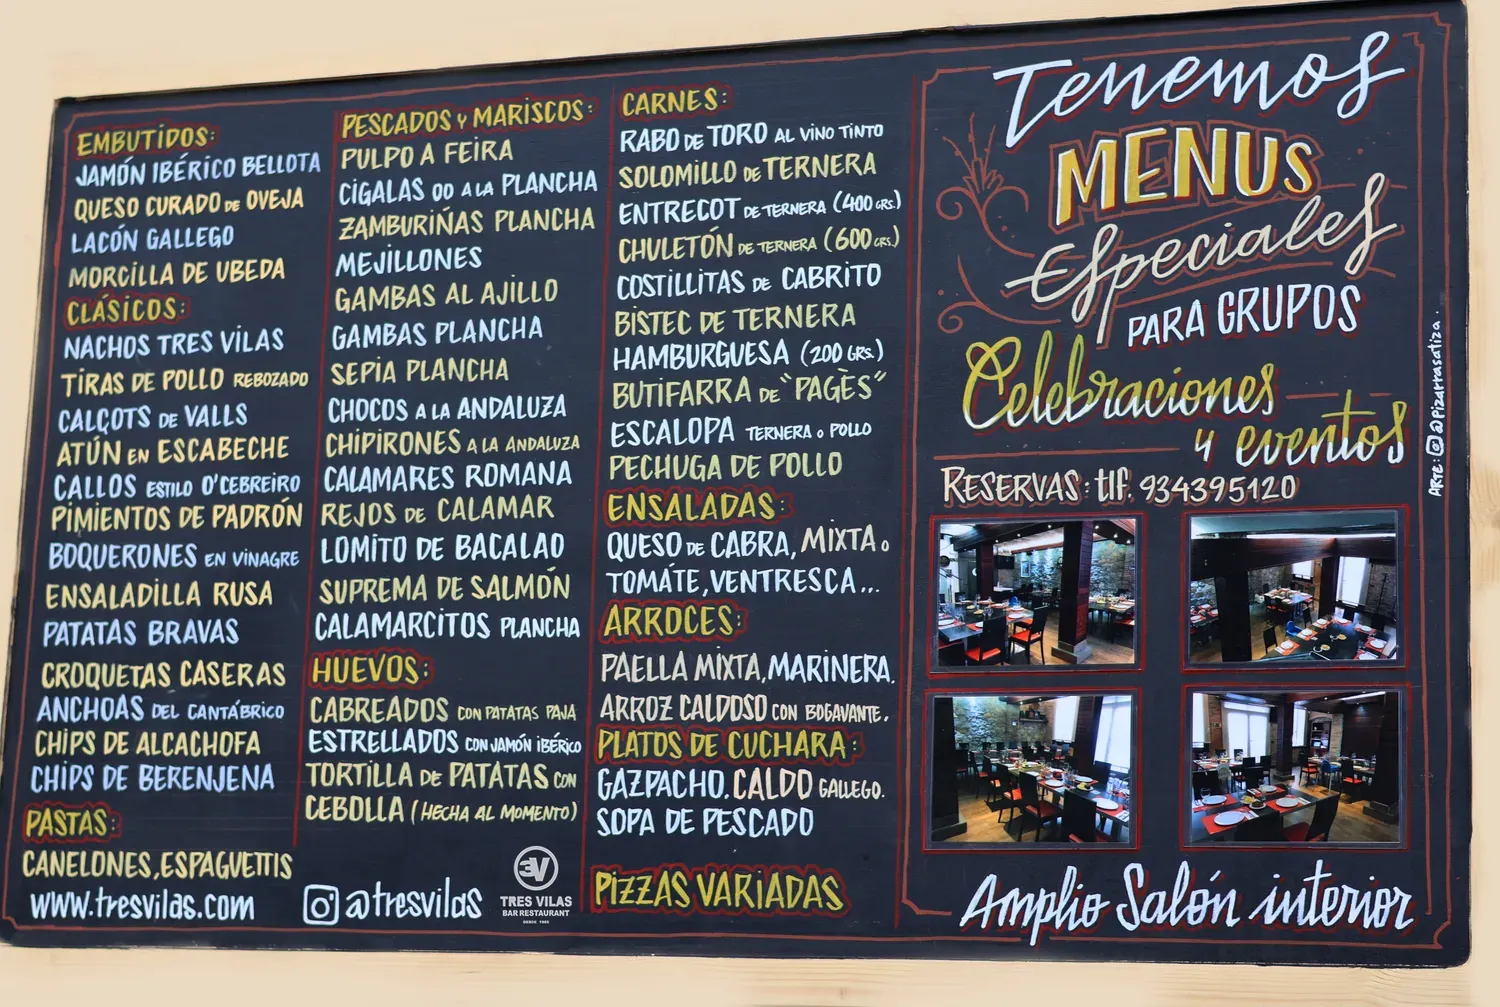 EMBUTIDOS:
JAMÓN IBÉRICO BELLOTA
QUESO CURADO DE OVEJA
LACÓN GALLEGO
MORCILLA DE UBEDA
CLÁSICOS:
NACHOS TRES VILAS
TIRAS DE POLLO REBOZADO
CALÇOTS DE VALLS
ATÚN EN ESCABECHE
CALLOS ESTILO O'CEBREIRO
PIMIENTOS DE PADRÓN
BOQUERONES EN VINAGRE
ENSALADILLA RUSA
PATATAS BRAVAS
CROQUETAS CASERAS
ANCHOAS DEL CANTÁBRICO
CHIPS DE ALCACHOFA
CHIPS DE BERENJENA
PASTAS:
CANELONES, ESPAGUETTIS
www.tresvilas.com
PESCADOS Y MARISCOS:
PULPO A FEIRA
CIGALAS 00 A LA PLANCHA
ZAMBURIÑAS PLANCHA
MEJILLONES
GAMBAS AL AJILLO
GAMBAS PLANCHA
SEPIA PLANCHA
CHOCOS A LA ANDALUZA
CHIPIRONES A LA ANDALUZA
CALAMARES ROMANA
REJOS DE CALAMAR
LOMITO DE BACALAO
SUPREMA DE SALMÓN
CALAMARCITOS PLANCHA
HUEVOS:
CABREADOS CON PATATAS PAJA
ESTRELLADOS CON JAMÓN IBÉRICO
TORTILLA DE PATATAS CON
CEBOLLA (HECHA AL MOMENTO)
@tresvilas
3V
TRES VILAS
BAR RESTAURANT
DESDE 1985
CARNES:
RABO DE TORO AL VINO TINTO
SOLOMILLO DE TERNERA
ENTRECOT DE TERNERA (400 GRS.)
CHULETÓN DE TERNERA (600 GRS.)
COSTILLITAS DE CABRITO
BISTEC DE TERNERA
HAMBURGUESA (200 GRS.)
BUTIFARRA DE "PAGÈS"
ESCALOPA TERNERA O POLLO
PECHUGA DE POLLO
ENSALADAS:
QUESO DE CABRA, MIXTA O
TOMÁTE, VENTRESCA...
ARROCES:
PAELLA MIXTA, MARINERA.
ARROZ CALDOSO CON BOGAVANTE.
PLATOS DE CUCHARA:
GAZPACHO. CALDO GALLEGO.
SOPA DE PESCADO
PIZZAS VARIADAS
Tenemos
MENUS
Especiales
PARA GRUPOS
Celebraciones
y eventos
RESERVAS: tlf. 934395120
Amplio Salón interior
ARTE: @pizarrasatiza.